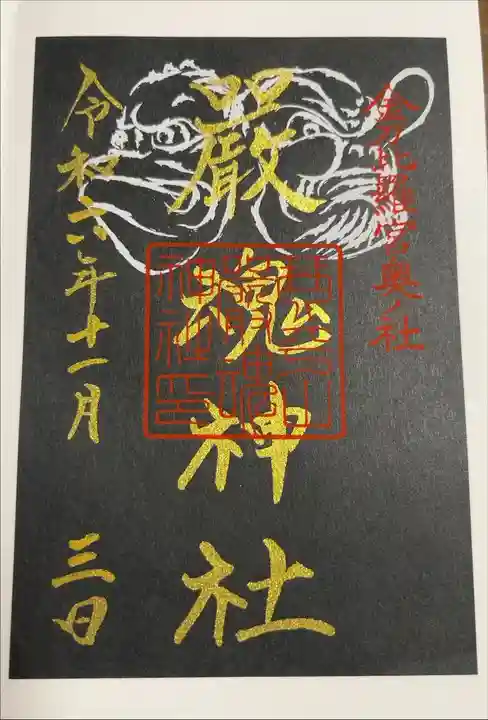 金刀比羅宮奥ノ社
嚴魂神社
令和六年十一月三日